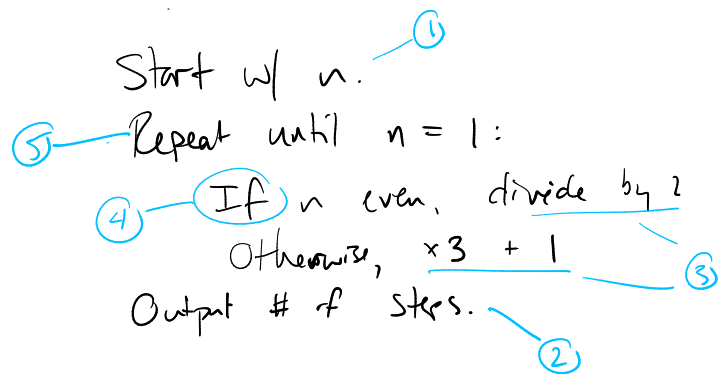 ①
Start w/ n.
⑤ Repeat until n = 1:
④ If n even, divide by 2
Otherwise, ×3 + 1 ③
Output # of steps.
②